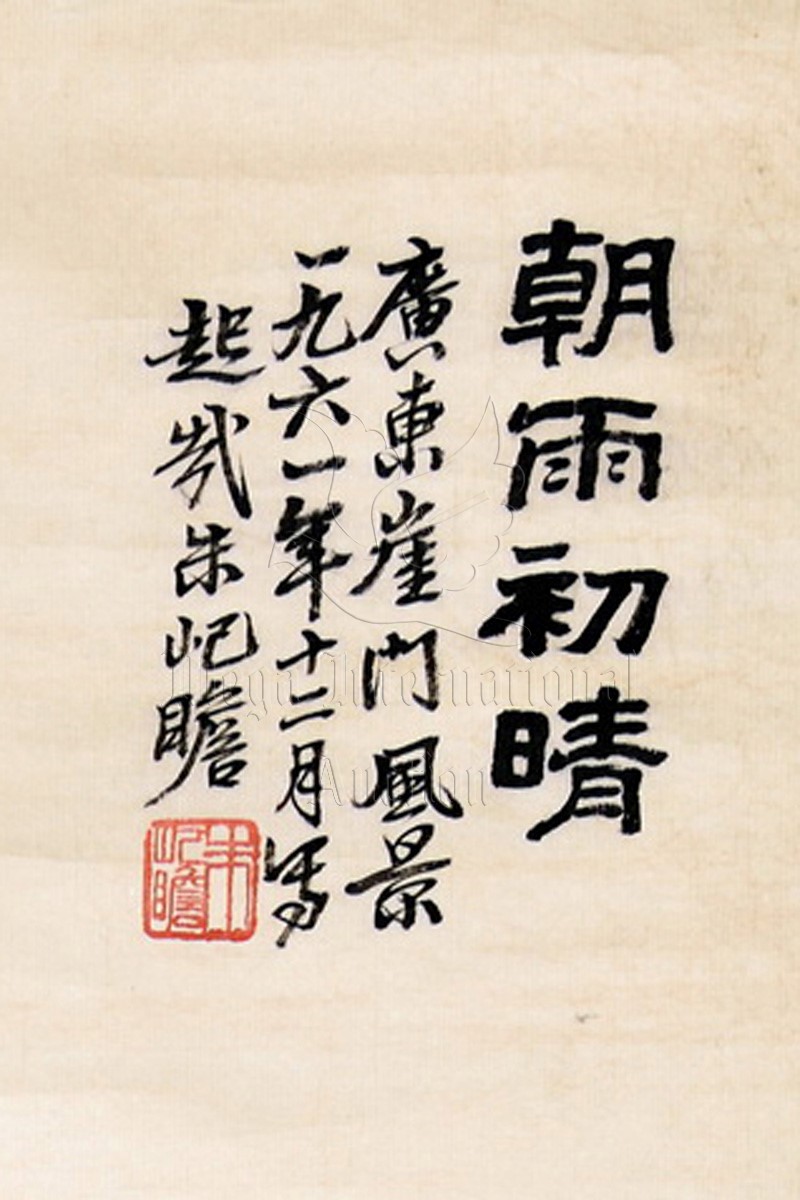 朝雨初晴
廣東崖門風景
一九六一年十二月寫
起哉朱屺瞻
朱屺瞻
Mega International
Auction